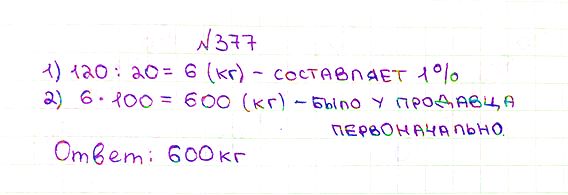 №377
1) 120 : 20 = 6 (кг) – составляет 1%
2) 6 · 100 = 600 (кг) – было у продавца
первоначально.
Ответ: 600 кг